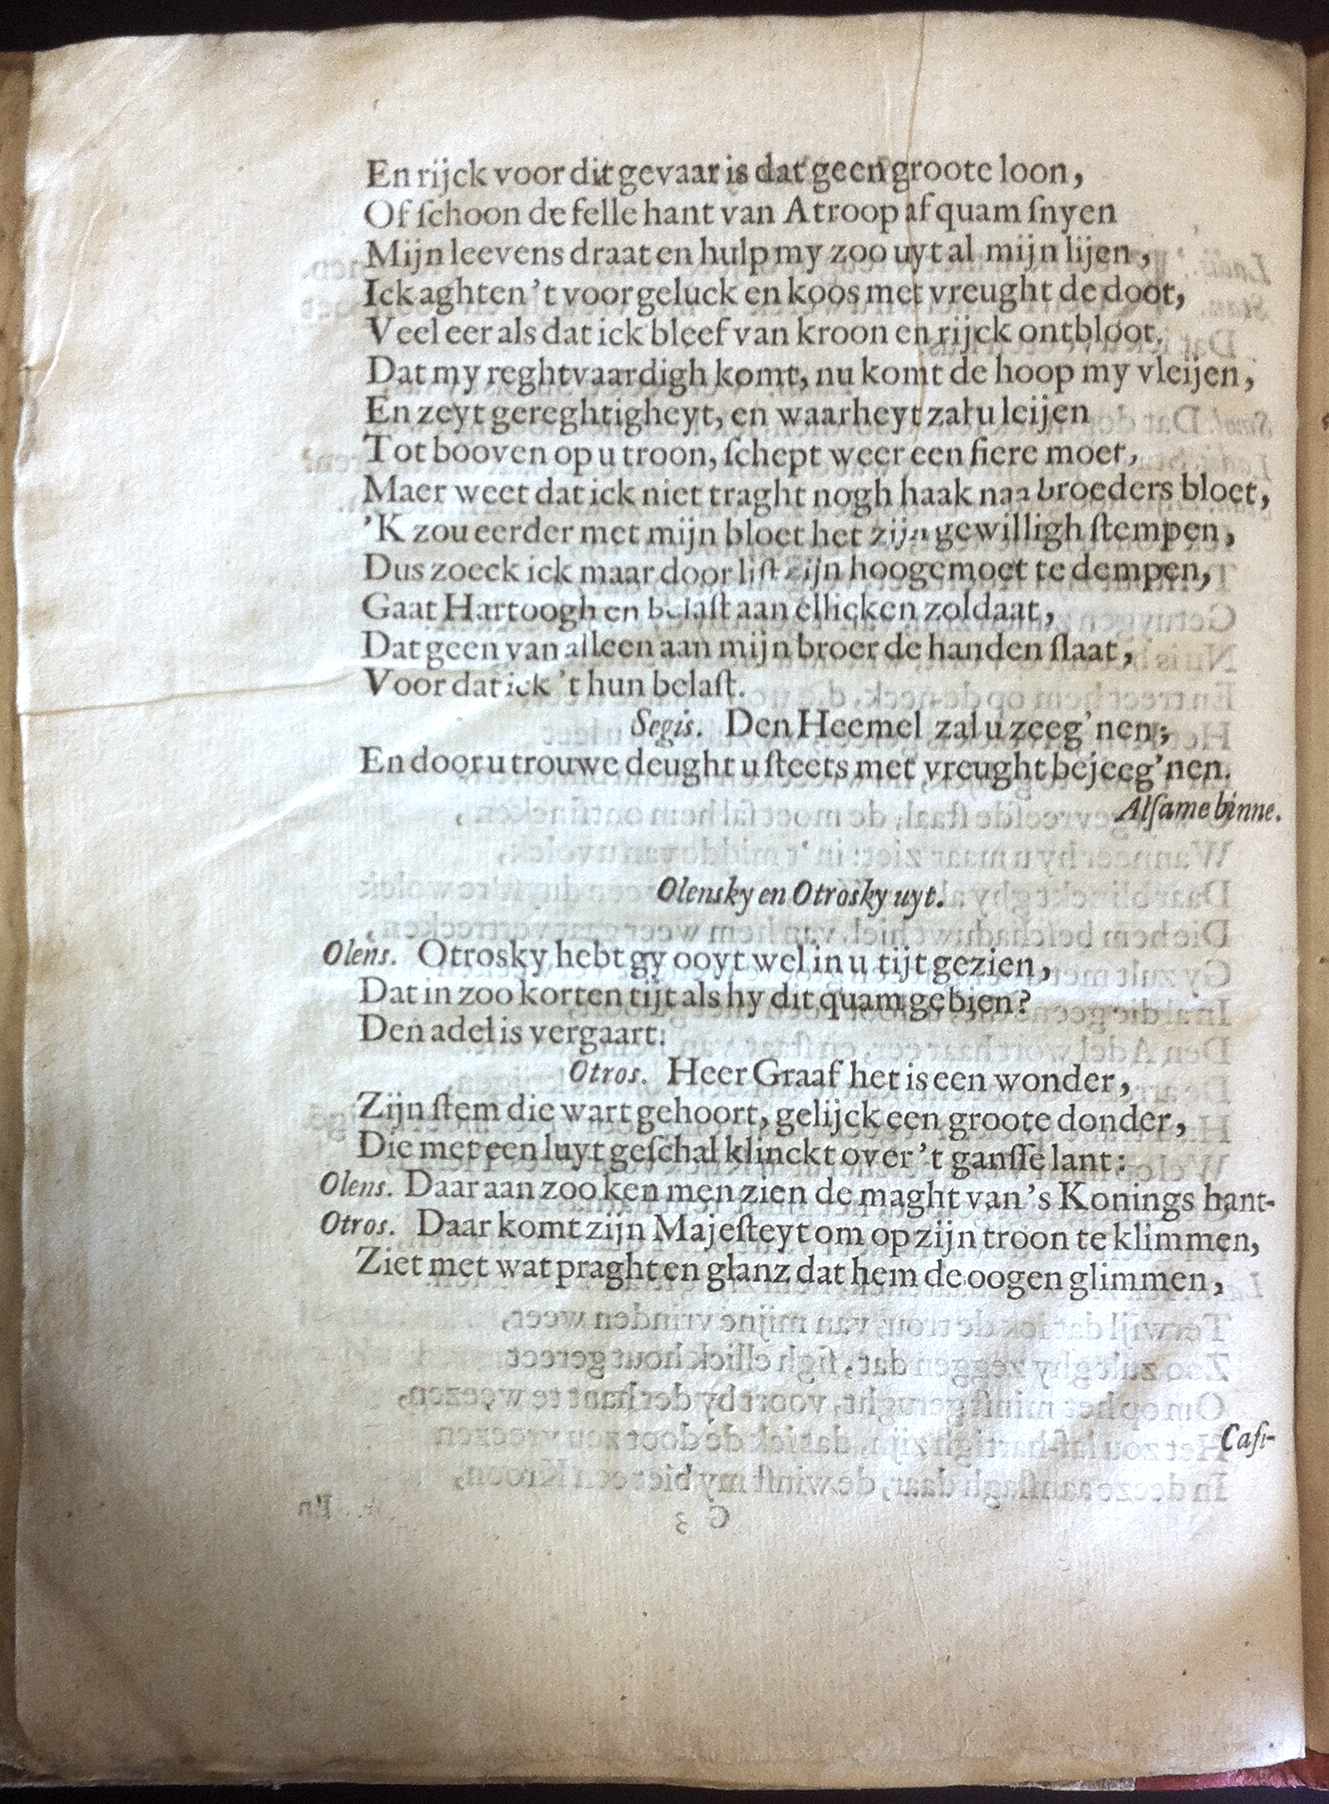 En rijck voor dit gevaar is dat geen groote loon,
Of ſchoon de felle hant van Atroop af quam ſnyen
Mijn leevens draat en hulp my zoo uyt al mijn lijen,
Ick aghten 't voor geluck en koos met vreught de doot,
Veel eer als dat ick bleef van kroon en rijck ontbloot.
Dat my reghtvaardigh komt, nu komt de hoop my vleijen,
En zeyt gereghtigheyt, en waarheyt zal u leijen
Tot booven op u troon, ſchept weer een fiere moet,
Maer weet dat ick niet traght nogh haak naa broeders bloet,
'K zou eerder met mijn bloet het zijn gewilligh ſtempen,
Dus zoeck ick maar door liſt zijn hoogemoet te dempen,
Gaat Hartoogh en belaſt aan ellicken zoldaat,
Dat geen van alleen aan mijn broer de handen ſlaat,
Voor dat ick 't hun belaſt.
Segis. Den Heemel zal u zeeg'nen;
En door u trouwe deught u ſteets met vreught bejeeg'nen.
Alſame binne.
Olensky en Otrosky uyt.
Olens. Otrosky hebt gy ooyt wel in u tijt gezien,
Dat in zoo korten tijt als hy dit quam gebien?
Den adel is vergaart.
Otros. Heer Graaf het is een wonder,
Zijn ſtem die wart gehoort, gelijck een groote donder,
Die met een luyt geſchal klinckt over 't ganſſe lant:
Olens. Daar aan zoo ken men zien de maght van 's Konings hant-
Otros. Daar komt zijn Majeſteyt om op zijn troon te klimmen,
Ziet met wat praght en glanz dat hem de oogen glimmen,
Caſi-